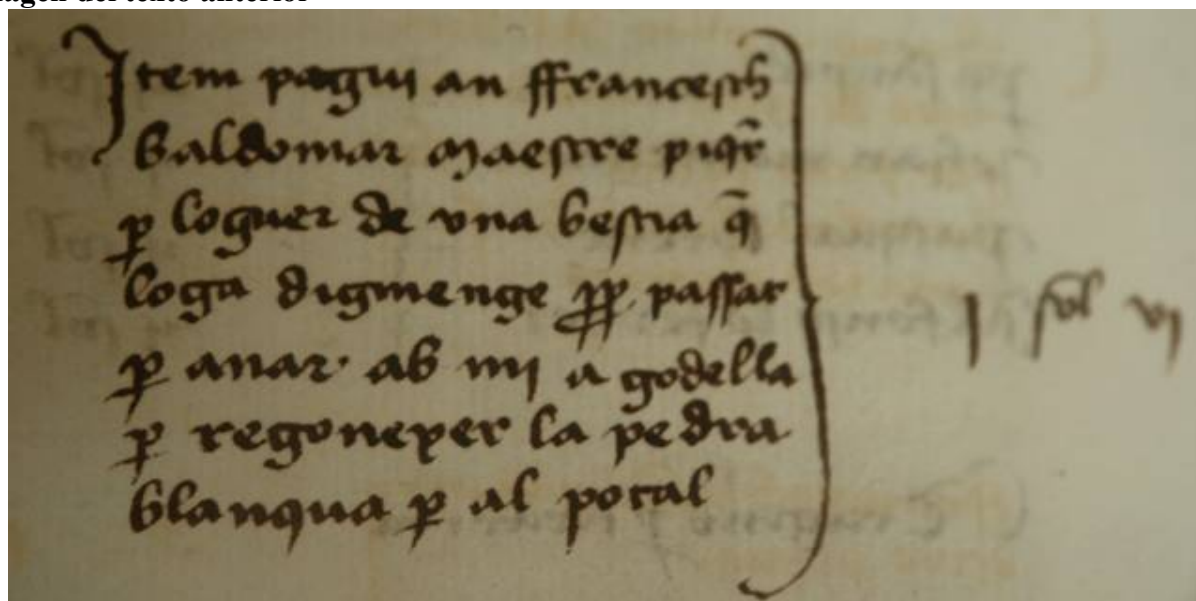 agen del texto anterior
Item paguj an ffrancesch
baldomar maestre piqr̄
ꝑ loguer de vna bestia q̄
loga digmenge ꝓꝑ passat
ꝑ anar· ab mj a godella
ꝑ regonexer la pedra
blanqua ꝑ al potal
I sol vj